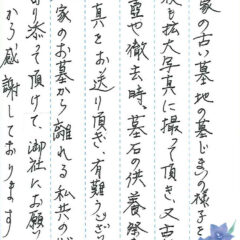 家の古い墓地の墓じまいの様子を
後も拡大写真に撮って頂き、又古
霊や徹去時。墓石の供養祭
真をお送り頂き、有難うござい
家のお墓から離れる私共の
り添って頂けて、御社にお願い
から感謝しております